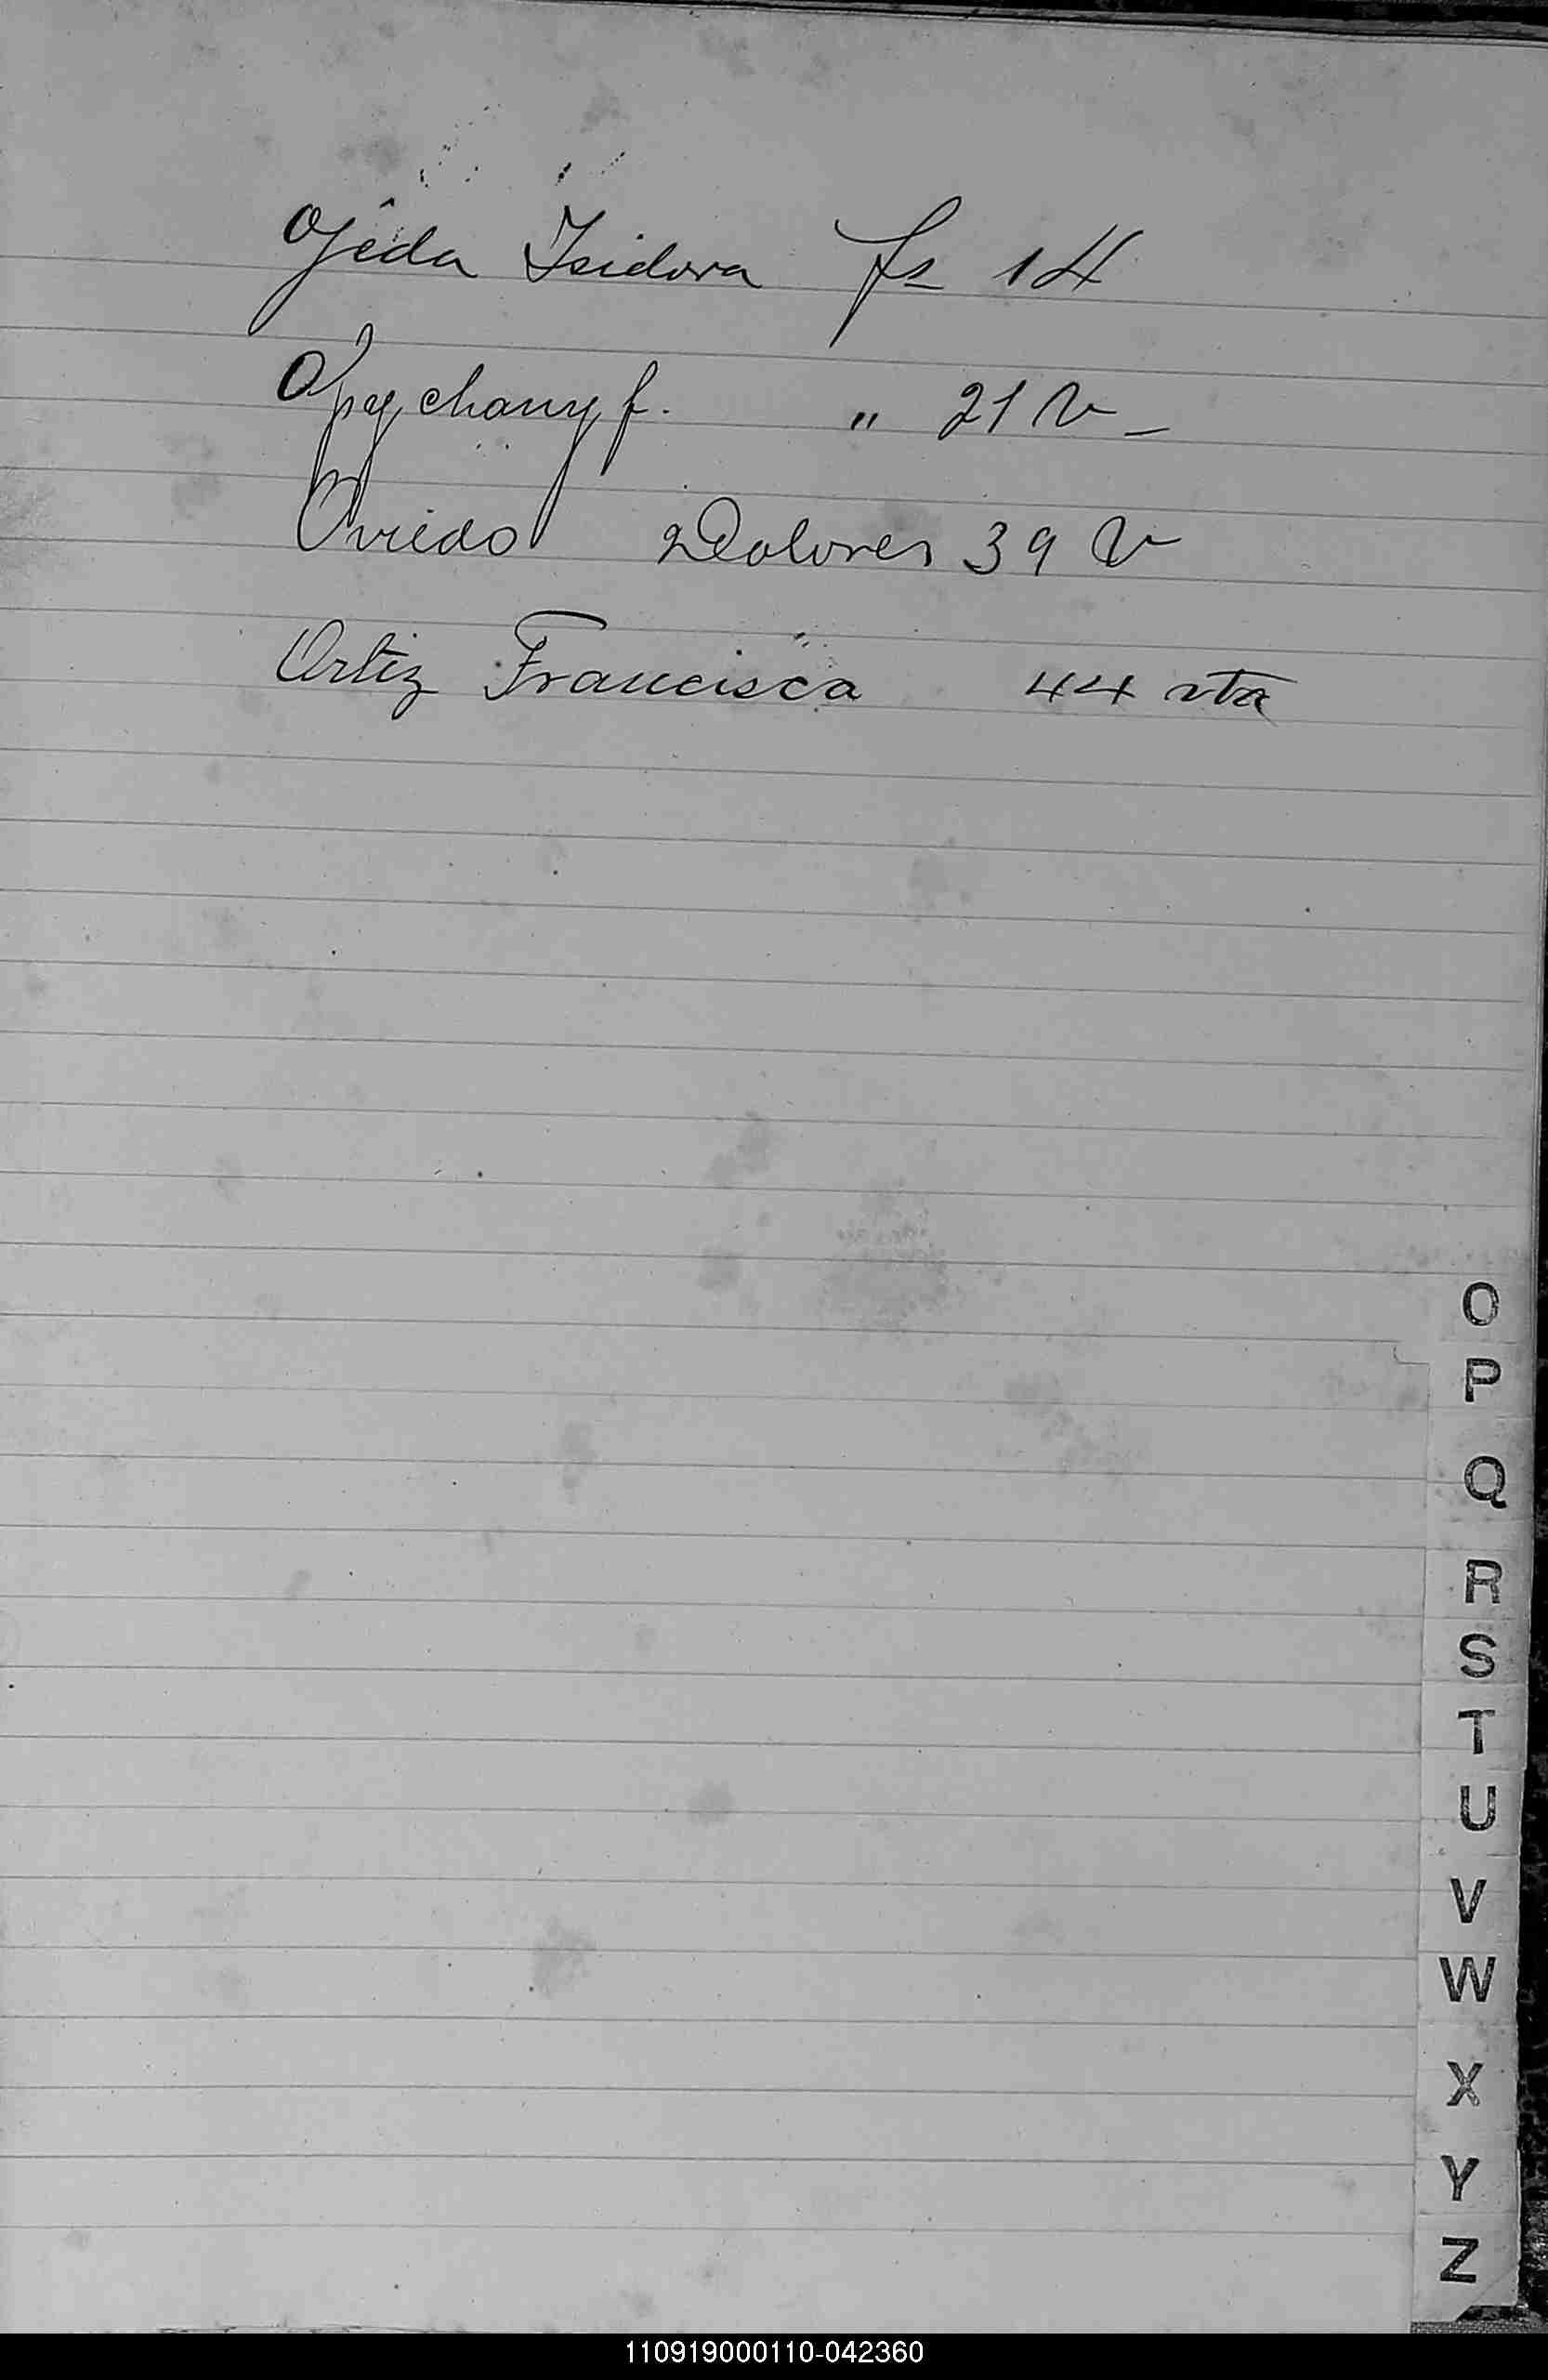 Ojeda Isidora fs 14
" 21 V -
Oviedo Dolores 39 V
Ortiz Francisca 44 vta
O
P
Q
R
S
T
U
V
W
X
Y
Z
110919000110-042360